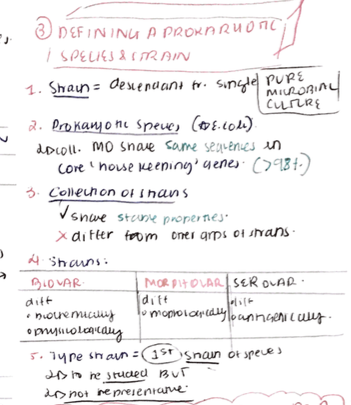 ③ DEFINING A PROKARYOTIC
SPECIES & STRAIN
1. Strain = descendant fr. single PURE MICROBIAL CULTURE
2. Prokaryotic Species (E.coli)
coll. MO share same sequences in
core 'house keeping' genes. (>98%)
3. Collection of strains
✓ share stable properties.
✗ differ from other grps of strains.
4. Strains:
BIOVAR. MORPHOVAR SEROVAR.
diff diff diff
• biochemically • morphologically • antigenically.
• physiologically
5. Type strain = 1st strain of species
to be studied BUT
not representative.